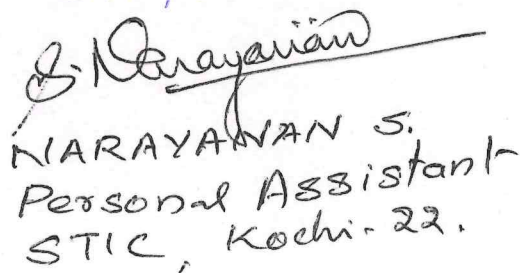 S. Narayanan
NARAYANAN S.
Personal Assistant
STIC, Kochi-22.